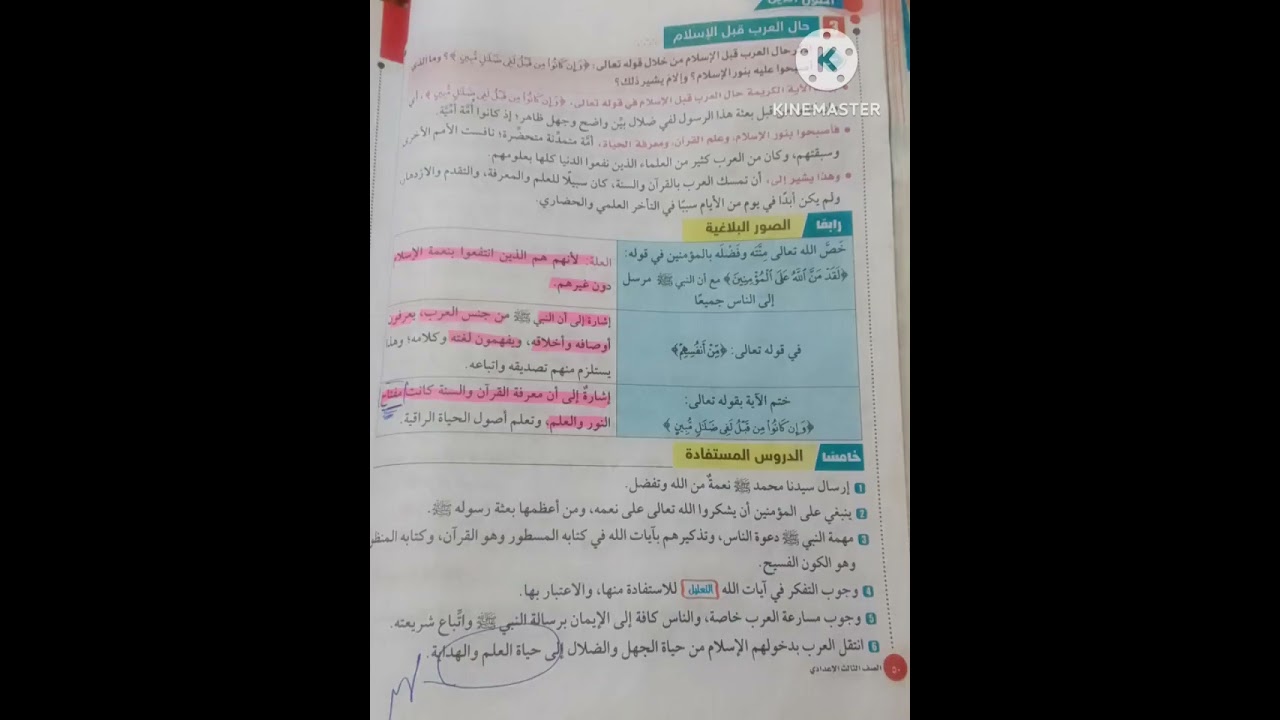 أصول الدين
3 حال العرب قبل الإسلام
حال العرب قبل الإسلام من خلال قوله تعالى: ﴿وَإِن كَانُوا مِن قَبْلُ لَفِي ضَلَالٍ مُّبِينٍ﴾؟ وما الذي
أصبحوا عليه بنور الإسلام؟ وإلام يشير ذلك؟
الآية الكريمة حال العرب قبل الإسلام في قوله تعالى: ﴿وَإِن كَانُوا مِن قَبْلُ لَفِي ضَلَالٍ مُّبِينٍ﴾، أي
قبل بعثة هذا الرسول لفي ضلال بيِّن واضح وجهل ظاهر؛ إذ كانوا أُمَّة أُمِّيَّة.
• فأصبحوا بنور الإسلام، وعلم القرآن، ومعرفة الحياة، أمَّة متمدِّنة متحضِّرة؛ نافست الأمم الأخرى
وسبقتهم، وكان من العرب كثير من العلماء الذين نفعوا الدنيا كلها بعلومهم.
• وهذا يشير إلى: أن تمسك العرب بالقرآن والسنة، كان سبيلًا للعلم والمعرفة، والتقدم والازدهار
ولم يكن أبدًا في يوم من الأيام سببًا في التأخر العلمي والحضاري.
رابعًا الصور البلاغية
خَصَّ الله تعالى مِنَّتَه وفَضْلَه بالمؤمنين في قوله:
﴿لَقَدْ مَنَّ اللَّهُ عَلَى الْمُؤْمِنِينَ﴾ مع أن النبي ﷺ مرسل
إلى الناس جميعًا
العلة: لأنهم هم الذين انتفعوا بنعمة الإسلام
دون غيرهم.
في قوله تعالى: ﴿مِّنْ أَنفُسِهِمْ﴾
إشارة إلى أن النبي ﷺ من جنس العرب، يعرفون
أوصافه وأخلاقه، ويفهمون لغته وكلامه؛ وهذا
يستلزم منهم تصديقه واتباعه.
ختم الآية بقوله تعالى:
﴿وَإِن كَانُوا مِن قَبْلُ لَفِي ضَلَالٍ مُّبِينٍ﴾
إشارةٌ إلى أن معرفة القرآن والسنة كانت مفتاح
النور والعلم، وتعلم أصول الحياة الراقية.
خامسًا الدروس المستفادة
1 إرسال سيدنا محمد ﷺ نعمةٌ من الله وتفضل.
2 ينبغي على المؤمنين أن يشكروا الله تعالى على نعمه، ومن أعظمها بعثة رسوله ﷺ.
3 مهمة النبي ﷺ دعوة الناس، وتذكيرهم بآيات الله في كتابه المسطور وهو القرآن، وكتابه المنظور
وهو الكون الفسيح.
4 وجوب التفكر في آيات الله التعليل للاستفادة منها، والاعتبار بها.
5 وجوب مسارعة العرب خاصة، والناس كافة إلى الإيمان برسالة النبي ﷺ واتِّباع شريعته.
6 انتقل العرب بدخولهم الإسلام من حياة الجهل والضلال إلى حياة العلم والهداية.
٥٠ الصف الثالث الإعدادي
KINEMASTER